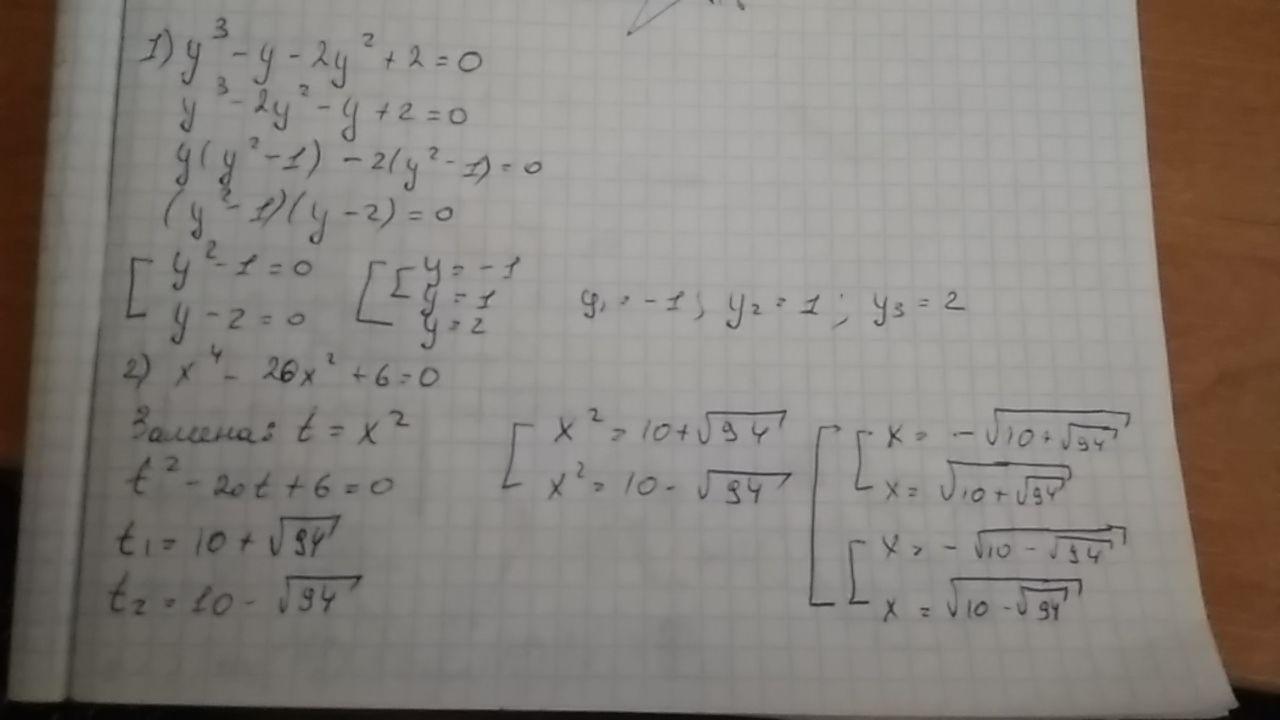 1) y³ - y - 2y² + 2 = 0
y³ - 2y² - y + 2 = 0
y(y² - 1) - 2(y² - 1) = 0
(y² - 1)(y - 2) = 0
[ y² - 1 = 0 [ [ y = -1
y - 2 = 0 y = 1 y₁ = -1; y₂ = 1; y₃ = 2
y = 2
2) x⁴ - 20x² + 6 = 0
Замена: t = x²
t² - 20t + 6 = 0
t₁ = 10 + √94
t₂ = 10 - √94
[ x² = 10 + √94
x² = 10 - √94
[ [ x = -√(10 + √94)
x = √(10 + √94)
[ x = -√(10 - √94)
x = √(10 - √94)